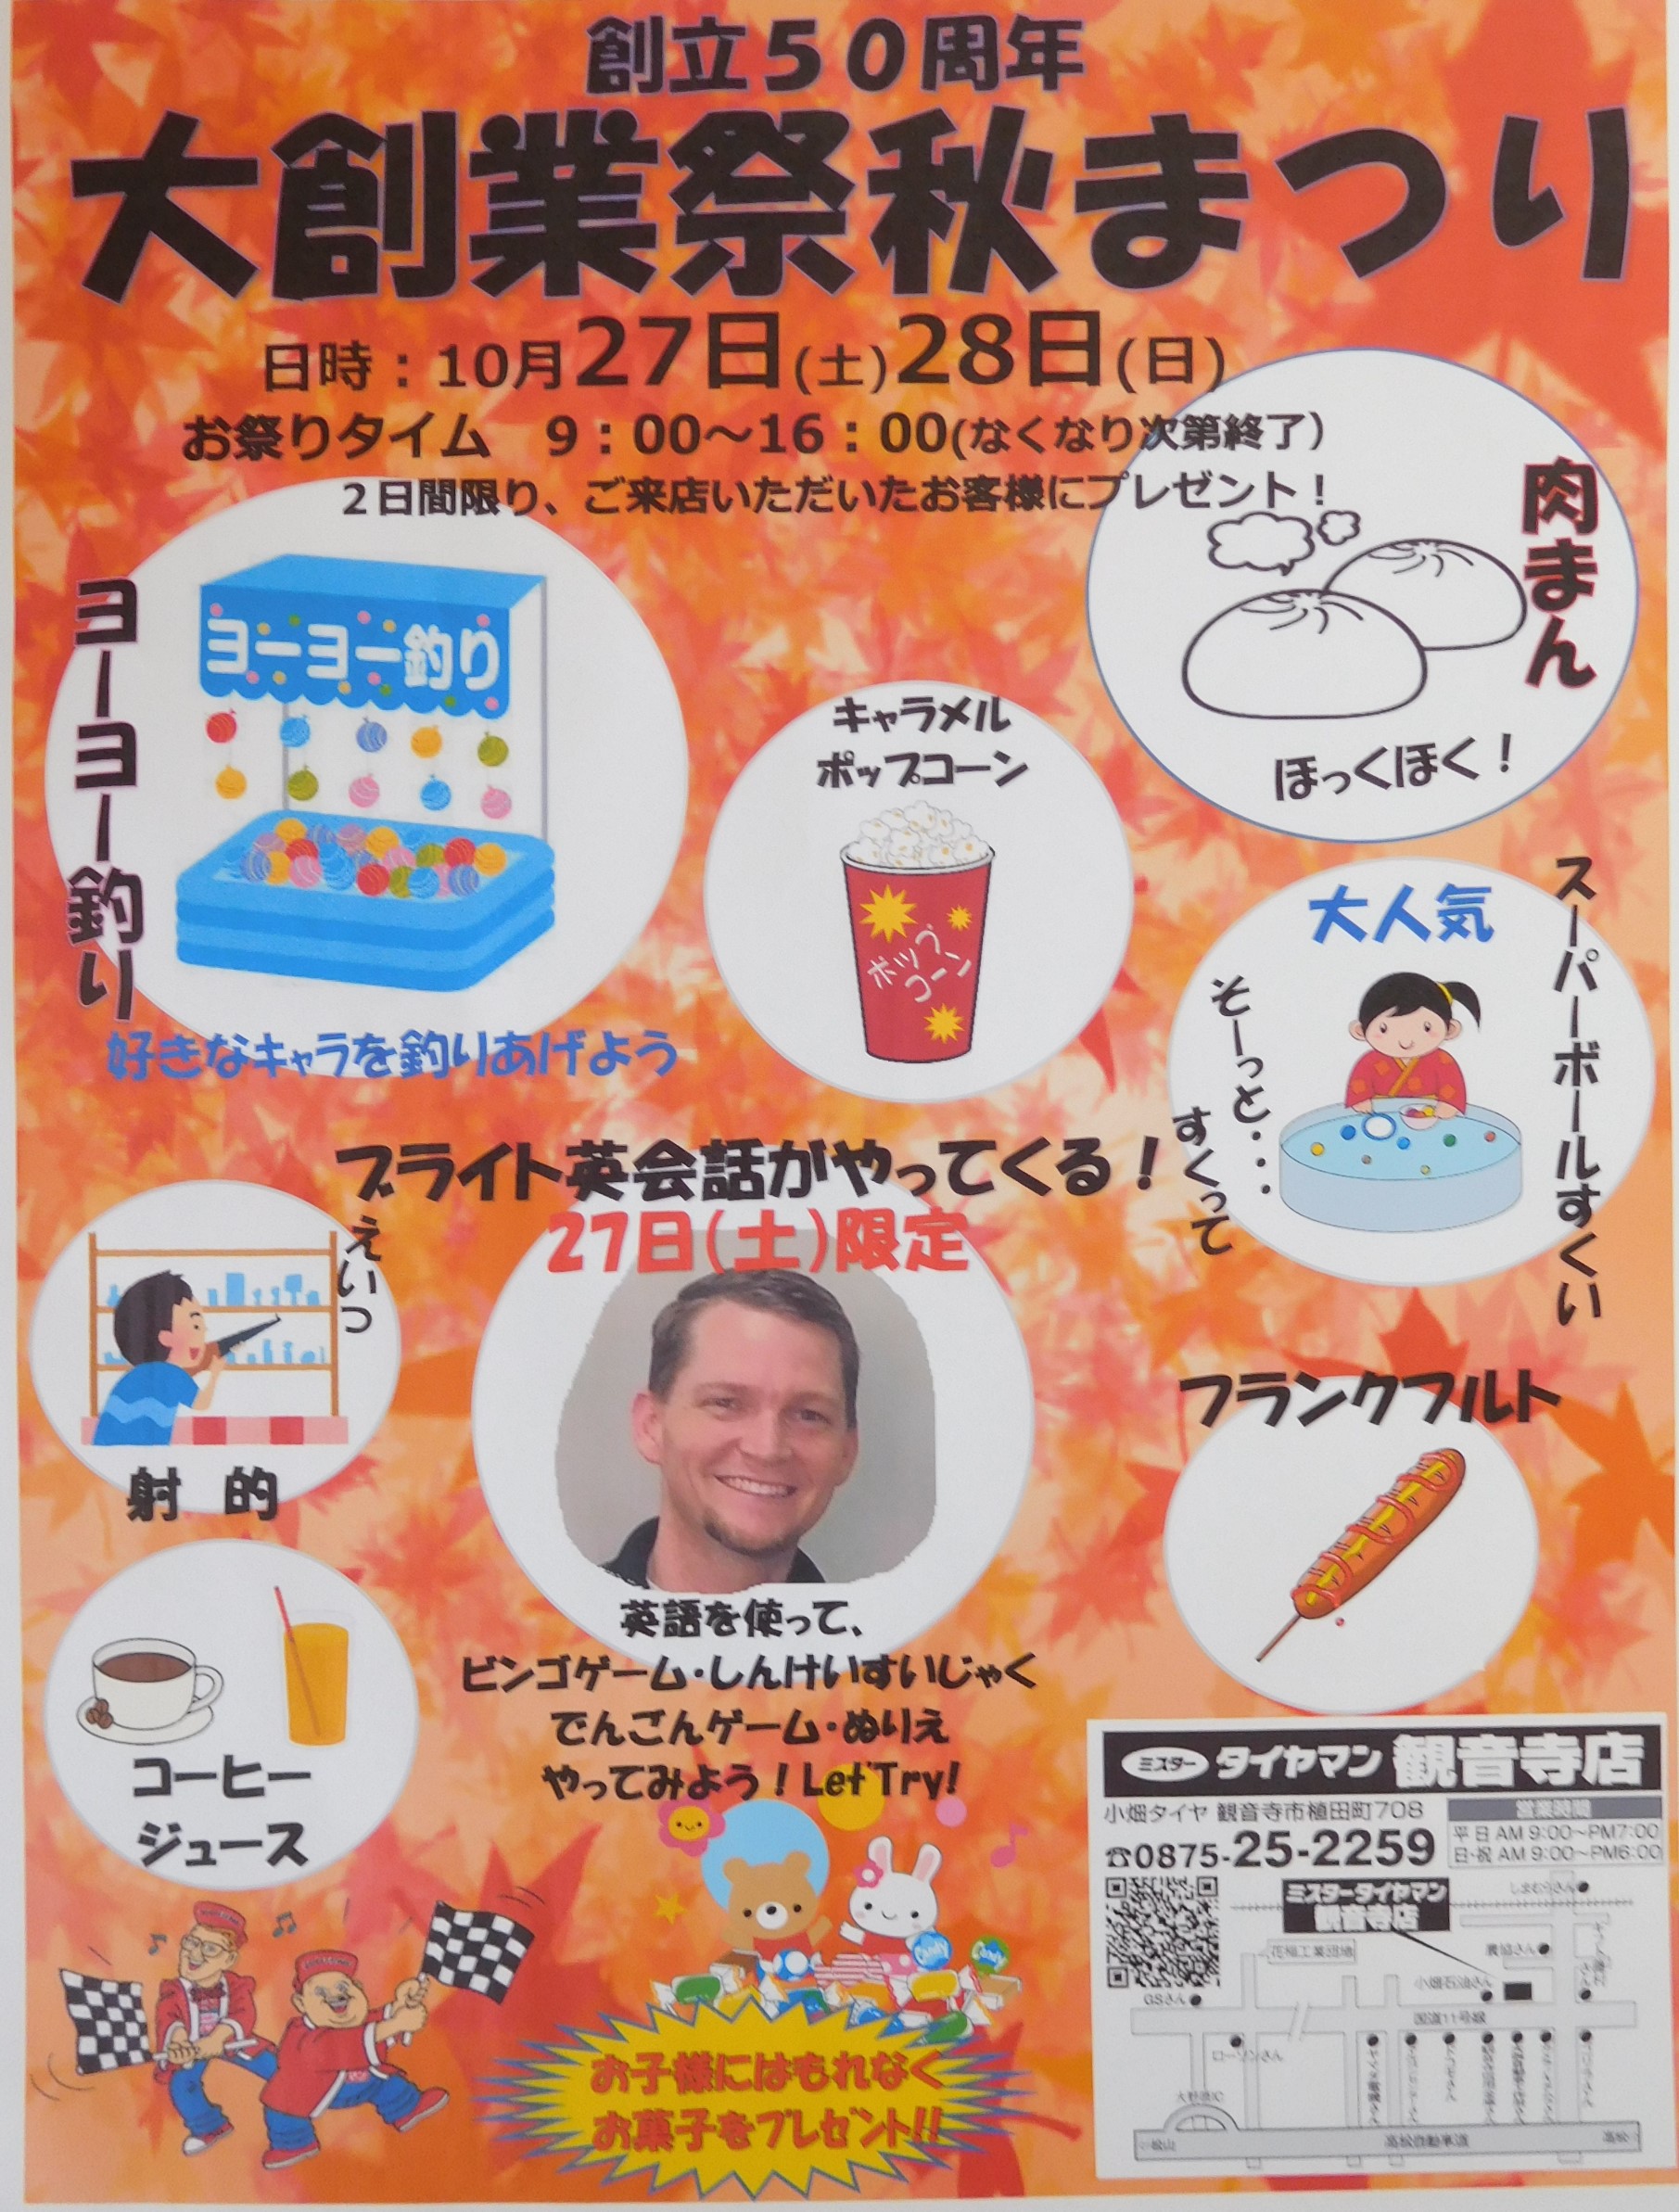 創立50周年
大創業祭秋まつり
日時：10月27日(土)28日(日)
お祭りタイム　9：00～16：00(なくなり次第終了)
2日間限り、ご来店いただいたお客様にプレゼント！
肉まん
ほっくほく！
ヨーヨー釣り
ヨーヨー釣り
好きなキャラを釣りあげよう
キャラメル
ポップコーン
ポップ
コーン
大人気
スーパーボールすくい
そーっと・・・
すくって
ブライト英会話がやってくる！
27日(土)限定
えいっ
射 的
フランクフルト
英語を使って、
ビンゴゲーム・しんけいすいじゃく
でんごんゲーム・ぬりえ
やってみよう！Let'Try!
コーヒー
ジュース
Candy
Candy
お子様にはもれなく
お菓子をプレゼント!!
ミスター タイヤマン 観音寺店
小畑タイヤ 観音寺市植田町708
☎0875-25-2259
営業時間
平 日 AM 9:00～PM7:00
日・祝 AM 9:00～PM6:00
ミスタータイヤマン
観音寺店
しまむらさん
花稲工業団地
農協さん
小畑石油さん
GSさん
国道11号線
ローソンさん
大野原IC
高松自動車道